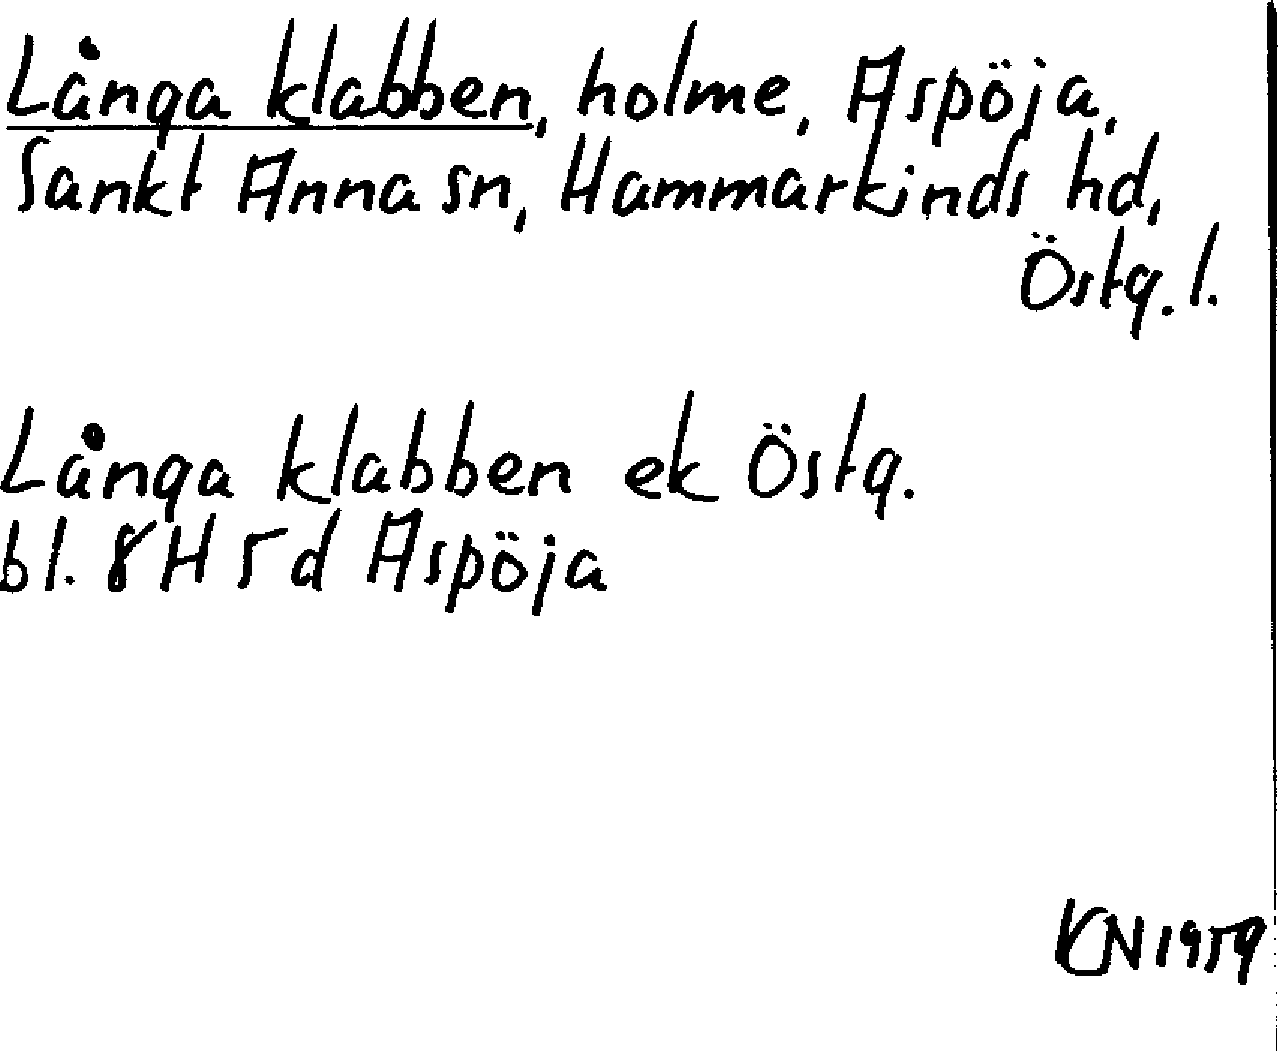 Långa klabben, holme, Aspöja,
Sankt Anna sn, Hammarkinds hd,
Östg. l.
Långa klabben ek Östg.
bl. 8H5d Aspöja
KN1959